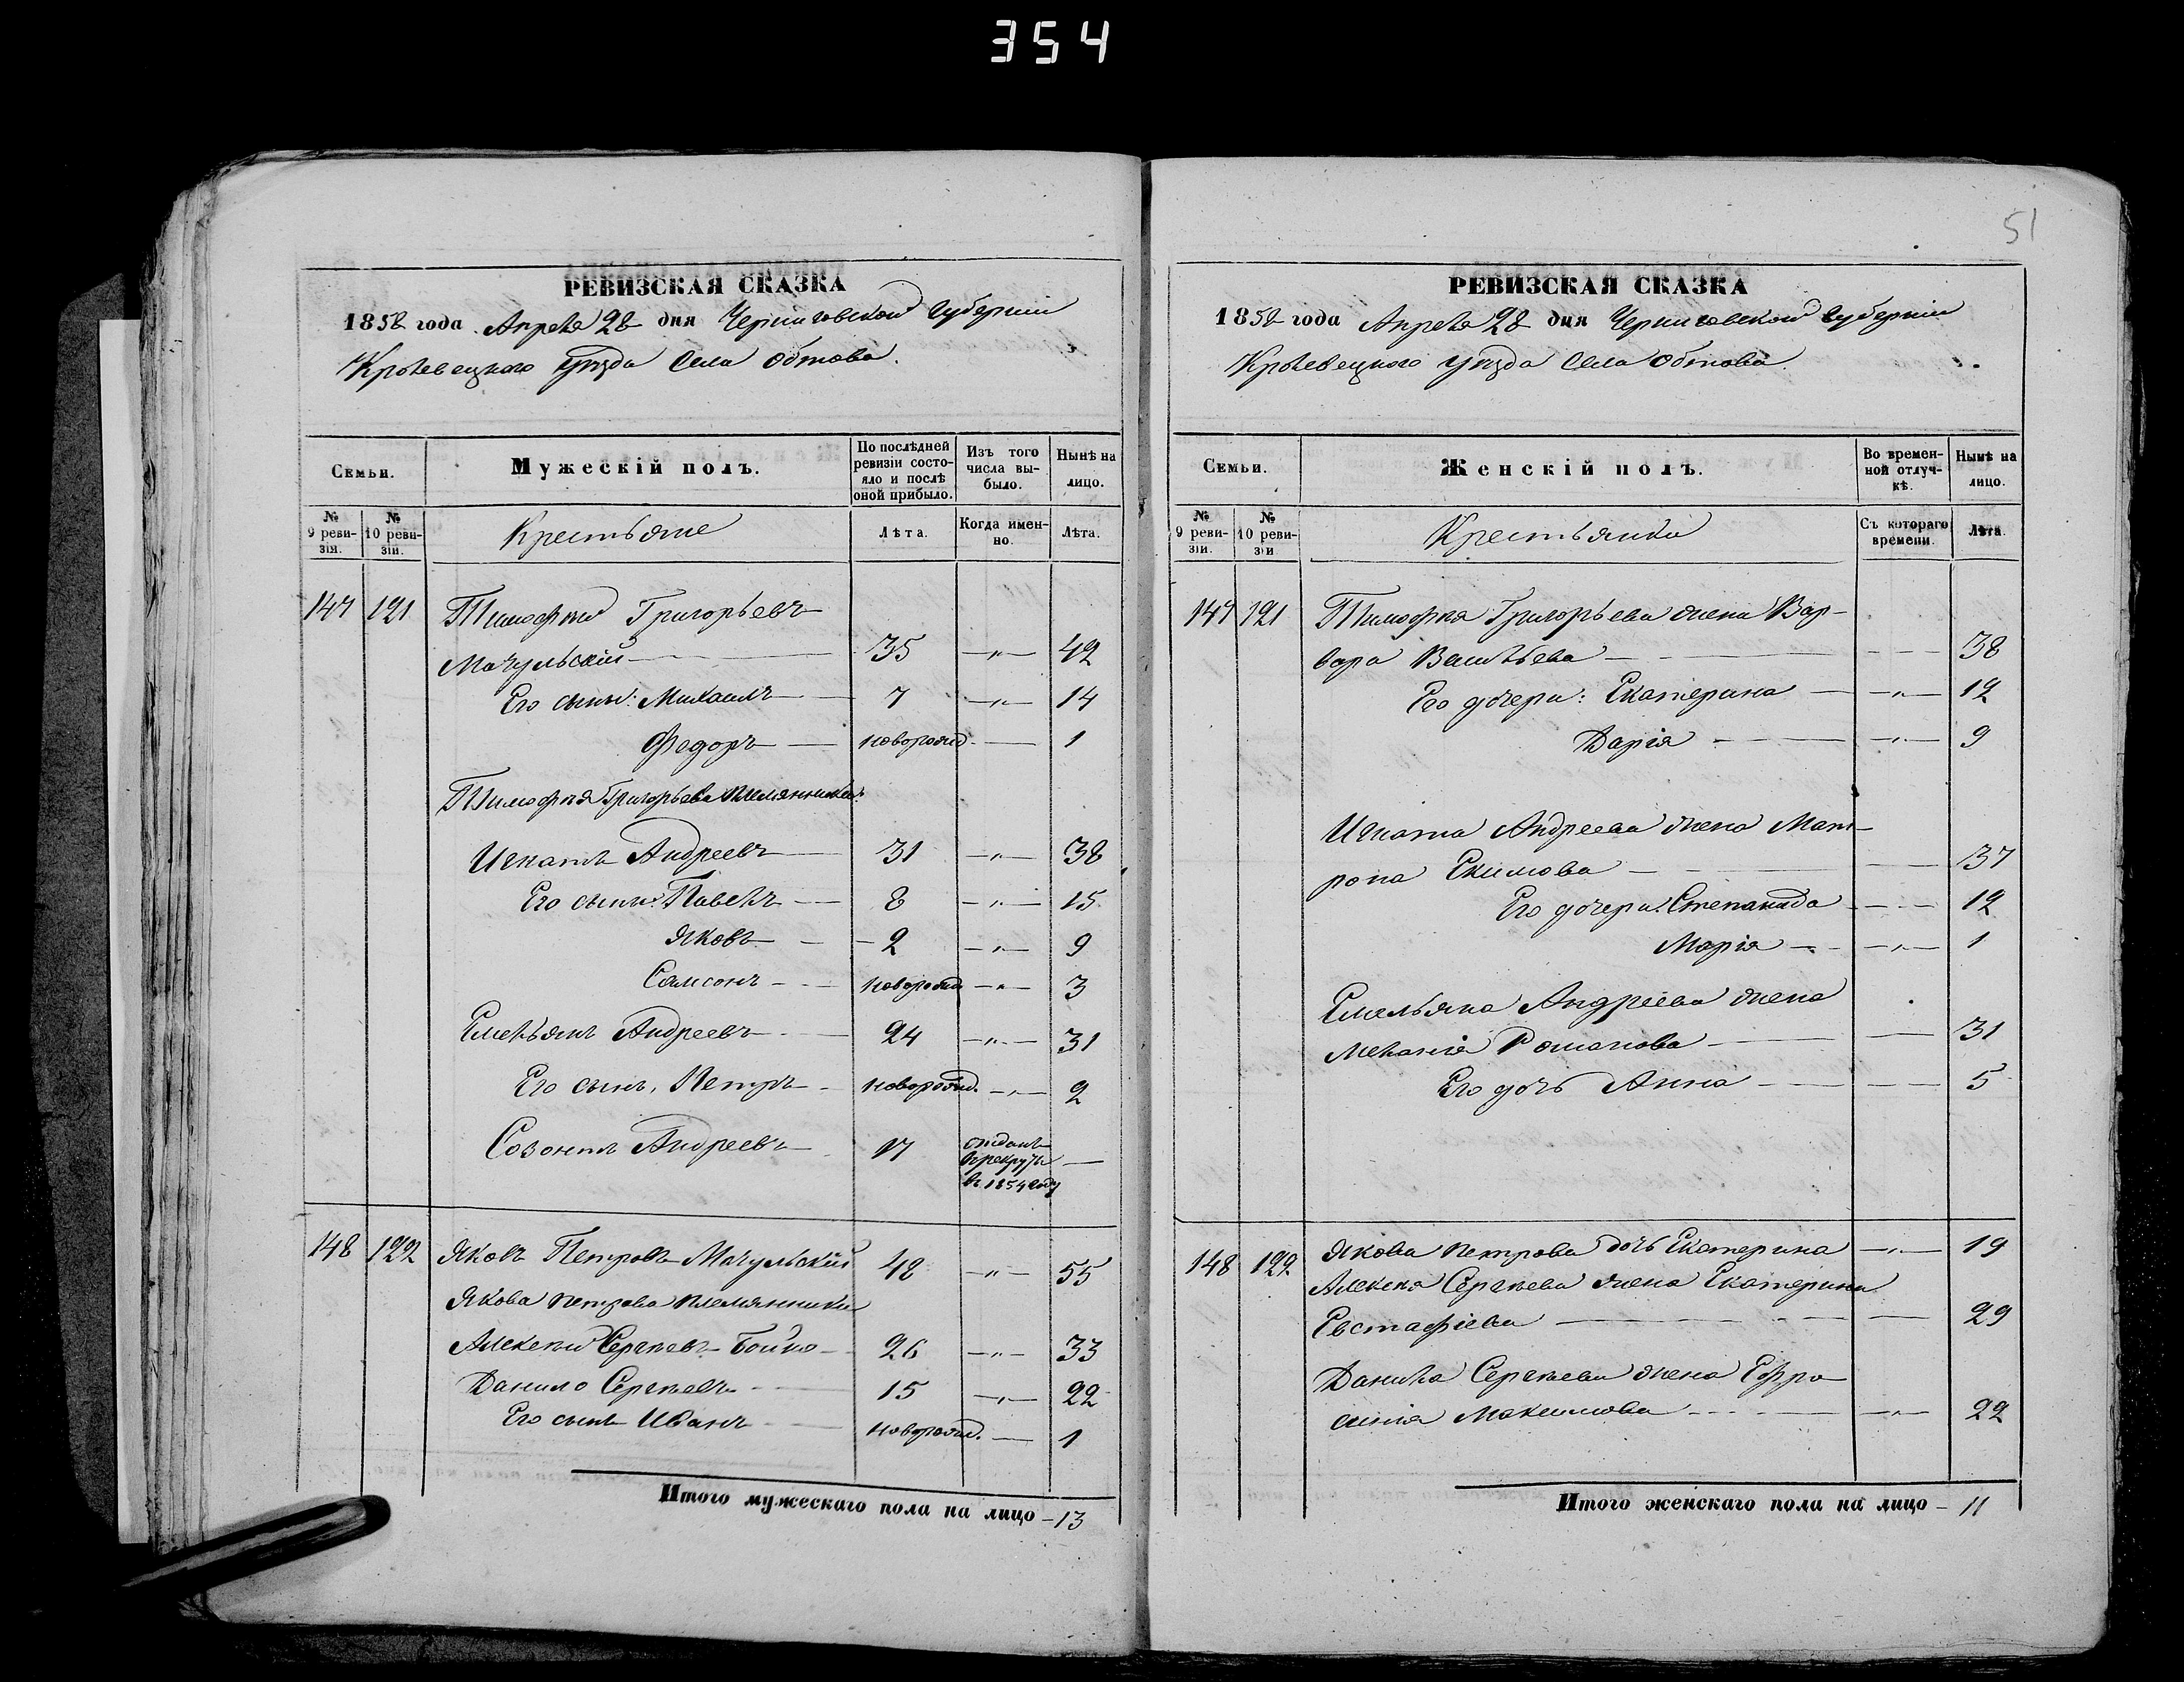 354
51
РЕВИЗСКАЯ СКАЗКА
1858 года Апреля 28 дня Черниговской губерніи
Кролевецкого Уѣзда Села Обтова.
Семьи. Мужескій полъ. По послѣдней ревизіи состояло и послѣ оной прибыло. Изъ того числа выбыло. Нынѣ на лицо.
№ 9 ревизія. № 10 ревизіи. Крестьяне Лѣта. Когда именно. Лѣта.
147 121 Тимофей Григорьевъ
Мачульскій — 35 — „ — 42
Его сыны: Михаилъ — 7 — „ — 14
Федоръ — новорожд. — 1
Тимофея Григорьева племянники:
Игнатъ Андреевъ — 31 — „ — 38
Его сыны: Павелъ — 8 — „ — 15
Яковъ — 2 — „ — 9
Самсонъ — новорожд — „ — 3
Емельянъ Андреевъ — 24 — „ — 31
Его сынъ, Петръ — новорожд. — „ — 2
Созонтъ Андреевъ — 17 отданъ
в рекруты —
въ 1854 году
148 122 Яковъ Петровъ Мачульскій 48 — „ — 55
Якова Петрова племянники
Алексей Сергѣевъ Бойко — 26 — „ — 33
Данило Сергѣевъ — 15 — „ — 22
Его сынъ Иванъ — новорожд. — 1
Итого мужескаго пола на лицо — 13
РЕВИЗСКАЯ СКАЗКА
1858 года Апреля 28 дня Черниговской губерніи
Кролевецкого Уѣзда Села Обтова.
Семьи. Женскій полъ. Во временной отлучкѣ. Нынѣ на лицо.
№ 9 ревизіи. № 10 ревизи Крестьянки Съ котораго времени. Лѣта.
147 121 Тимофея Григорьева жена Вар-
вара Васильева — 38
Его дочери: Екатерина — „ — 12
Дарія — „ — 9
Игната Андреева жена Мат-
рона Екимова — 37
Его дочери: Степанида — 12
Марія — „ — 1
Емельяна Андреева жена
Меланія Романова — 31
Его дочь Анна — 5
148 122 Якова Петрова дочь Екатерина — „ — 19
Алексея Сергѣева жена Екатерина
Евстафіева — 29
Данила Сергѣева жена Ефро
синія Максимова — „ — 22
Итого женскаго пола на лицо — 11